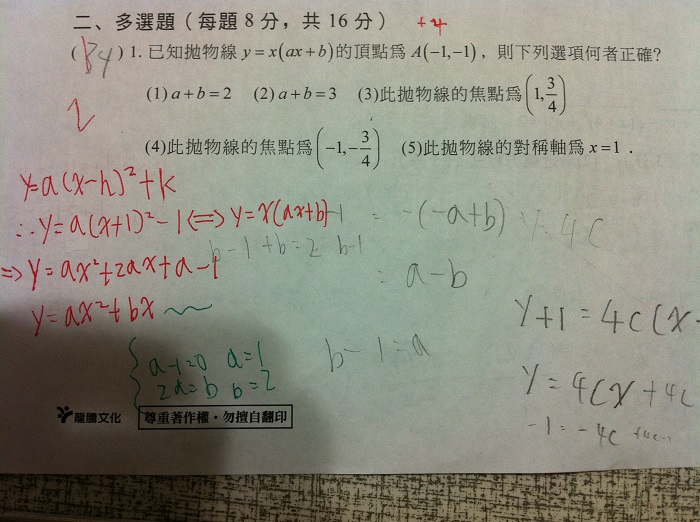 二、多選題（每題8分，共16分） +4
( B4 ) 1. 已知拋物線 y = x(ax+b) 的頂點為 A(−1,−1)，則下列選項何者正確?
(1) a+b=2 (2) a+b=3 (3)此拋物線的焦點為(1, 3/4)
(4)此拋物線的焦點為(−1, −3/4) (5)此拋物線的對稱軸為 x=1．
y=a(x-h)²+k
∴y=a(x+1)²-1 ⇔ y=x(ax+b)
-1 = -(-a+b)
y=4c
b-1+b=2 b-1
⇒ y=ax²+2ax+a-1
= a-b
y=ax²+bx
y+1=4c(x
a-1=0 a=1
2a=b b=2
b-1=a
y=4cx+4c
-1=-4c
龍騰文化 尊重著作權・勿擅自翻印